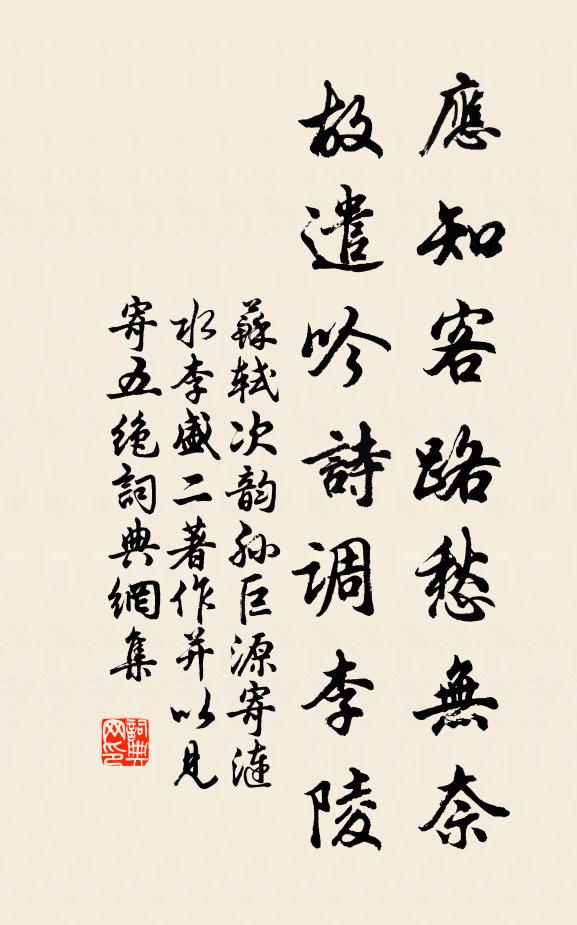 應知客路愁無奈
故遣吟詩調李陵
蘇軾次韵孫巨源寄漣
水李盛二著作并以見
寄五絶詞典網集
詞典
网印